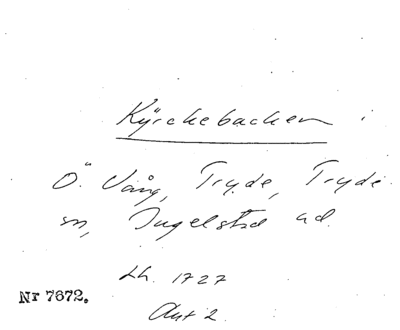 Kyrckebacken
Ö. Vång, Tryde, Tryde
sn, Ingelstad hd.
Lh. 1727
Akt 2
Nr 7672.